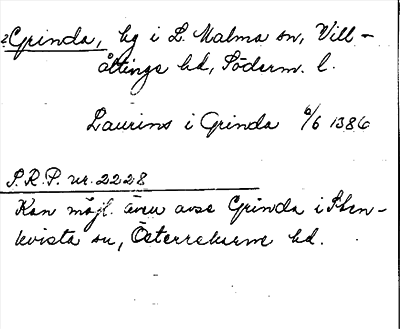 ?Grinda, hg i L. Malma sn, Vill-
åttinge hd, Söderm. l.
Laurins i Grinda 6/6 1386
S.R.P. nr. 2228
Kan möjl. även avse Grinda i Sten-
kvista sn, Österrekarne hd.